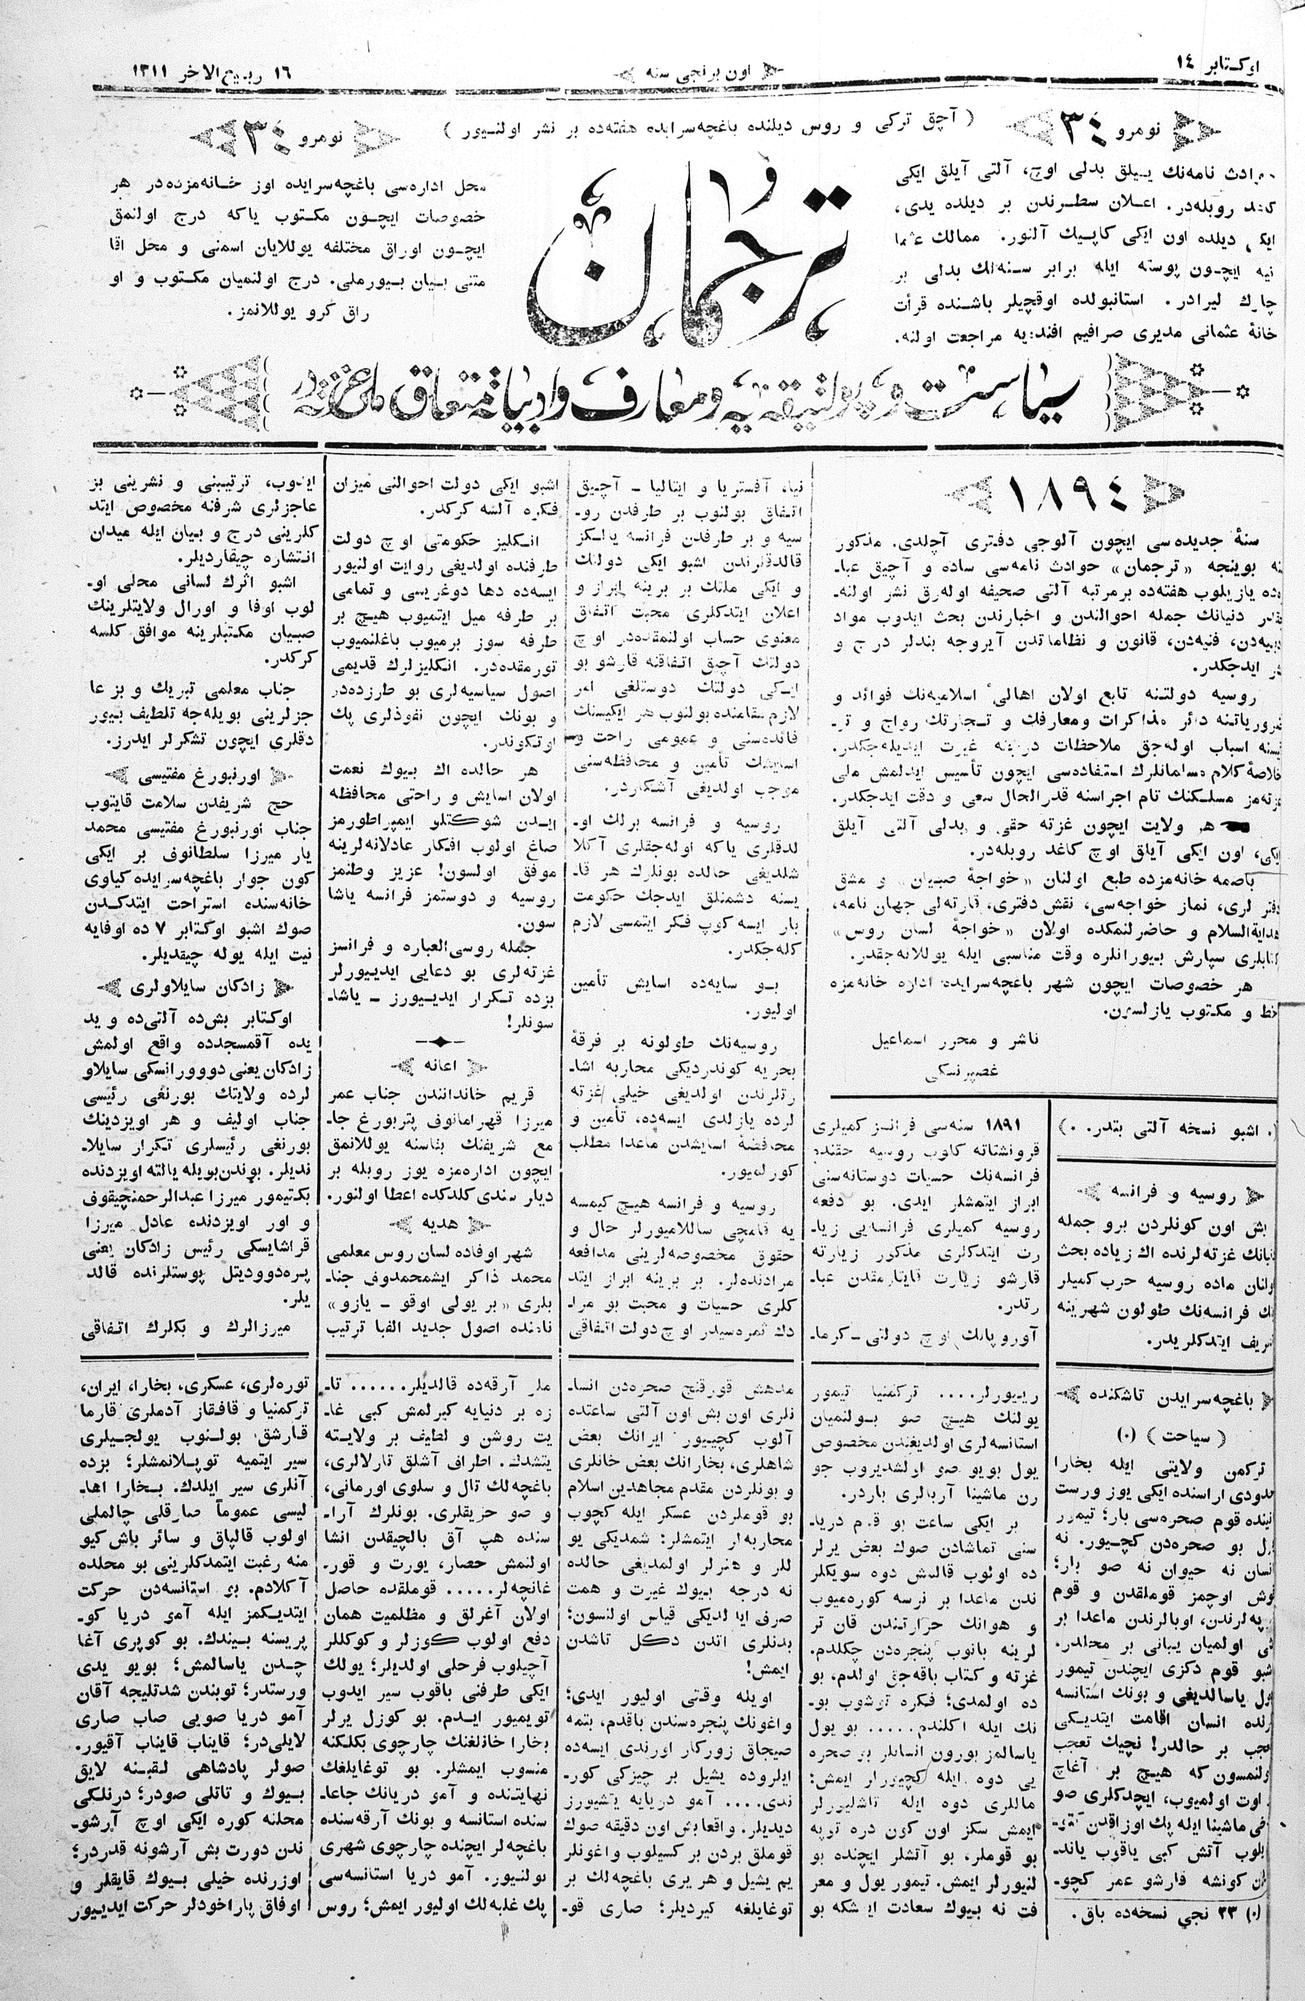 اوكتابر ١٤
اون برنجی سنه
١٦ ربیع الاخر ١٣١١
نومرو ٣٤
( آچق تركی و روس دیلنده باغچه‌سرایده هفته‌ده بر نشر اولنیور )
نومرو ٣٤
ییللق بدلی اوچ، آلتی آیلق ایكی
روبله‌در. اعلان سطرندن بر دیلده یدی،
ایكی دیلده اون ایكی كاپیك آلنور. ممالك عثما
نیه ایچون پوسته ایله برابر سنه‌لك بدلی بر
چارك لیرادر. استانبولده اوقچیلر باشنده قرأت
خانهٔ عثمانی مدیری صرافیم افندیه مراجعت اولنه.
ترجمان
محل اداره‌سی باغچه‌سرایده اوز خانه‌مزده‌در هر
خصوصات ایچون مكتوب یاكه درج اولنمق
ایچون اوراق مختلفه یوللایان اسمنی و محل اقا
متنی بیان بیورملی. درج اولنمیان مكتوب و او
راق كرو یوللانمز.
سیاست و معارف و ادبیاته متعلق ملی غزته‌در
١٨٩٤
سنهٔ جدیده‌سی ایچون آلوجی دفتری آچلدی. مذكور
بوینجه «ترجمان» حوادث نامه‌سی ساده و آچیق عبا-
یازیلوب هفته‌ده بر مرتبه آلتی صحیفه اوله‌رق نشر اولنه-
دنیانك جمله احوالندن و اخبارندن بحث ایدوب مواد
فنیه‌دن، قانون و نظاماتدن آیروجه بندلر درج و
ایدجكدر.
روسیه دولتنه تابع اولان اهالیٔ اسلامیه‌نك فوائد و
ضروریاتنه دائر مذاكرات ومعارفك و تجارتك رواج و تر-
اسباب اوله‌جق ملاحظات درجنه غیرت ایدیله‌جكدر.
خلاصهٔ كلام مسلمانلرك استفاده‌سی ایچون تأسیس ایدلمش ملی
غزته‌مز مسلكنك تام اجراسنه قدرالحال سعی و دقت ایدجكدر.
هر ولایت ایچون غزته حقی و بدلی آلتی آیلق
ایكی، اون ایكی آیلق اوچ كاغد روبله‌در.
باصمه خانه‌مزده طبع اولنان «خواجهٔ صبیان» و مشق
دفترلری، نماز خواجه‌سی، نقش دفتری، قارته‌لی جهان نامه،
هدایةالسلام و حاضرلنمكده اولان «خواجهٔ لسان روس»
كتابلری سپارش بیورانلره وقت مناسبی ایله یوللانه‌جقدر.
هر خصوصات ایچون شهر باغچه‌سرایده اداره خانه‌مزه
خط و مكتوب یازلسون.
ناشر و محرر اسماعیل
غصپرنسكی
اشبو نسخه آلتی بتدر.
روسیه و فرانسه
بش اون كونلردن برو جمله
غزته‌لرنده اك زیاده بحث
اولنان ماده روسیه حرب كمیلر
فرانسه‌نك طولون شهرینه
تشریف ایتدكلریدر.
١٨٩١ سنه‌سی فرانسز كمیلری
قرونشتاته كلوب روسیه حقنده
فرانسه‌نك حسیات دوستانه‌سنی
ابراز ایتمشلر ایدی. بو دفعه
روسیه كمیلری فرانسایی زیا-
رت ایتدكلری مذكور زیارته
قارشو زیارت قایتارمقدن عبا-
رتدر.
آوروپانك اوچ دولتی ـ كرما-
نیا، آفستریا و ایتالیا ـ آچیق
اتفاق بولنوب بر طرفدن رو-
سیه و بر طرفدن فرانسه یالكز
قالدقلرندن اشبو ایكی دولتك
و ایكی ملتك بر برینه ابراز و
اعلان ایتدكلری محبت اتفاق
معنوی حساب اولنمقده‌در. اوچ
دولتك آچیق اتفاقنه قارشو بو
ایكی دولتك دوستلغی امر
لازم مقامنده بولنوب هر ایكیسنك
فائده‌سنی و عمومی راحت و
اسایشك تأمین و محافظه‌سنی
موجب اولدیغی آشكاردر.
روسیه و فرانسه برلك او-
لدقلری یاكه اوله‌جقلری آكلا
شلدیغی حالده بونلرك هر قا-
یسنه دشمنلق ایدجك حكومت
بار ایسه كوپ فكر ایتمسی لازم
كله‌جكدر.
بو سایه‌ده اسایش تأمین
اولیور.
روسیه‌نك طولونه بر فرقهٔ
بحریه كوندردیكی محاربه اشا-
رتلرندن اولدیغی خیلی غزته
لرده یازلدی ایسه‌ده، تأمین و
محافضهٔ اسایشدن ماعدا مطلب
كورلمیور.
روسیه و فرانسه هیچ كیمسه
یه قامچی ساللامیورلر حال و
حقوق مخصوصه‌لرینی مدافعه
مرادنده‌لر. بر برینه ابراز ایتد
كلری حسیات و محبت بو مرا-
دك ثمره‌سیدر اوچ دولت اتفاقی
اشبو ایكی دولت احوالنی میزان
فكره آلسه كركدر.
انكلیز حكومتی اوچ دولت
طرفنده اولدیغی روایت اولنیور
ایسه‌ده دها دوغریسی و تمامی
بر طرفه میل ایتمیوب هیچ بر
طرفه سوز برمیوب باغلنمیوب
تورمقده‌در. انكلیزلرك قدیمی
اصول سیاسیه‌لری بو طرزده‌در
و بونك ایچون نفوذلری پك
اوتكوندر.
هر حالده اك بیوك نعمت
اولان اسایش و راحتی محافظه
ایدن شوكتلو ایمپراطورمز
صاغ اولوب افكار عادلانه‌لرینه
موفق اولسون! عزیز وطنمز
روسیه و دوستمز فرانسه یاشا
سون.
جمله روسی‌العباره و فرانسز
غزته‌لری بو دعایی ایدییورلر
بزده تكرار ایدییورز ـ یاشا-
سونلر!
اعانه
قریم خاندانندن جناب عمر
میرزا قهرامانوف پتربورغ جا-
مع شریفنك بناسنه یوللانمق
ایچون اداره‌مزه یوز روبله بر
دیلر سندی كلدكده اعطا اولنور.
هدیه
شهر اوفاده لسان روس معلمی
محمد ذاكر ایشمحمدوف جنا-
بلری «بر یولی اوقو ـ یازو»
نامنده اصول جدید الفبا ترتیب
ایدوب، ترتیبنی و نشرینی بز
عاجزلری شرفنه مخصوص ایتد
كلرینی درج و بیان ایله میدان
انتشاره چیقاردیلر.
اشبو اثرك لسانی محلی او-
لوب اوفا و اورال ولایتلرینك
صبیان مكتبلرینه موافق كلسه
كركدر.
جناب معلمی تبریك و بز عا
جزلرینی بویله‌جه تلطیف بیور
دقلری ایچون تشكرلر ایدرز.
اورنبورغ مفتیسی
حج شریفدن سلامت قایتوب
جناب اورنبورغ مفتیسی محمد
یار میرزا سلطانوف بر ایكی
كون جوار باغچه‌سرایده كیاوی
خانه‌سنده استراحت ایتدكدن
صوك اشبو اوكتابر ٧ ده اوفایه
نیت ایله یوله چیقدیلر.
زادكان سایلاولری
اوكتابر بش‌ده آلتی‌ده و ید
یده آقمسجدده واقع اولمش
زادكان یعنی دووورانسكی سایلاو
لرده ولایتك بورنغی رئیسی
جناب اولیف و هر اویزدینك
بورنغی رئیسلری تكرار سایلا-
ندیلر. بوندن‌بویله یالته اویزدنده
بكتیمور میرزا عبدالرحمنچیقوف
و اور اویزدنده عادل میرزا
قراشایسكی رئیس زادكان یعنی
پره‌دوودیتل پوستلرنده قالد
یلر.
میرزالرك و بكلرك اتفاقی
باغچه‌سرایدن تاشكنده
( سیاحت ) (٠)
تركمن ولایتی ایله بخارا
حدودی اراسنده ایكی یوز ورست
قوم صحره‌سی بار؛ تیمور
یول بو صحره‌دن كچیور. نه
انسان نه حیوان نه صو بار؛
قوش اوچمز قوملقدن و قوم
تپه‌لرندن، اوبالرندن ماعدا بر
شی اولمیان یبانی بر محلدر.
اشبو قوم دكزی ایچندن تیمور
یول یاسالدیغی و بونك استانسه
لرنده انسان اقامت ایتدیكی
عجب بر حالدر! نچیك تعجب
اولنمسون كه هیچ بر آغاچ
اوت اولمیوب، ایچدكلری صو
ماشینا ایله پك اوزاقدن
آتش كبی یاقوب یاند-
كونشه قارشو عمر كچو-
(٠) ٣٣ نجی نسخه‌ده باق.
رییورلر.... تركمنیا تیمور
یولنك هیچ صو بولنمیان
استانسه‌لری اولدیغندن مخصوص
یول بویو صو اولشدیروب جو
رن ماشینا آربه‌لری باردر.
بر ایكی ساعت بو قوم دریا-
سنی تماشادن صوك بعض یرلر
ده اولوب قالمش دوه سویكلر
ندن ماعدا بر نرسه كوره‌میوب
و هوانك حرارتندن قان تر
لرینه باتوب پنجره‌دن چكلدم.
غزته و كتاب باقه‌جق اولدم، بو
ده اولمدی؛ فكره توشوب بو-
نك ایله اكلندم..... بو یول
یاسالمز بورون انسانلر بو صحره
یی دوه ایله كچیورلر ایمش؛
ماللری دوه ایله تاشلیورلر
ایمش سكز اون كون دره تویه
بو قوملر، بو آتشلر ایچنده بو
لنیورلر ایمش. تیمور یول و معر
فت نه بیوك سعادت ایشكه بو
مدهش قورقنچ صحره‌دن انسا-
نلری اون بش اون آلتی ساعتده
آلوب كچیور. ایرانك بعض
شاهلری، بخارانك بعض خانلری
و بونلردن مقدم مجاهدین اسلام
بو قوملردن عسكر ایله كچوب
محاربه‌لر ایتمشلر؛ شمدیكی یو
للر و هنرلر اولمدیغی حالده
نه درجه بیوك غیرت و همت
صرف ایدلدیكی قیاس اولنسون؛
بدنلری اتدن دكل تاشدن
ایمش!
اویله وقتی اولیور ایدی؛
واغونك پنجره‌سندن باقدم، بتمه
صیجاق زوركار اورندی ایسه‌ده
ایلروده یشیل بر چیزكی كور-
ندی.... آمو دریایه یتشیورز
دیدیلر. واقعا بش اون دقیقه صوك
قوملق بردن بر كسیلوب واغونلر
یم یشیل و هر یری باغچه‌لك بر
توغایلغه كیردیلر؛ صاری قو-
ملر آرقه‌ده قالدیلر...... تا-
زه بر دنیایه كیرلمش كبی غا-
یت روشن و لطیف بر ولایته
یتشدك. اطراف آشلق تارلالری،
باغچه‌لك تال و سلوی اورمانی،
و صو حزیقلری. بونلرك آرا-
سنده هپ آق بالچیقدن انشا
اولنمش حصار، یورت و قور-
غانچه‌لر..... قوملقده حاصل
اولان آغرلق و مظلمیت همان
دفع اولوب كوزلر و كوكللر
آچیلوب فرحلی اولدیلر؛ یولك
ایكی طرفنی باقوب سیر ایدوب
تویمیور ایدم. بو كوزل یرلر
بخارا خانلغنك چارجوی بكلكنه
منسوب ایمشلر. بو توغایلغك
نهایتنده و آمو دریانك جاعا-
سنده استانسه و بونك آرقه‌سنده
باغچه‌لر ایچنده چارجوی شهری
بولنیور. آمو دریا استانسه‌سی
پك غلبه‌لك اولیور ایمش؛ روس
توره‌لری، عسكری، بخارا، ایران،
تركمنیا و قافقاز آدملری قارما
قارشق بولنوب یولجیلری
سیر ایتمیه توپلانمشلر؛ بزده
آنلری سیر ایلدك. بخارا اها-
لیسی عموماً صارقلی چالملی
اولوب قالپاق و سائر باش كیو
منه رغبت ایتمدكلرینی بو محلده
آكلادم. بو استانسه‌دن حركت
ایتدیكمز ایله آمو دریا كو-
پریسنه بیندك. بو كوپری آغا
چدن یاسالمش؛ بویو یدی
ورستدر؛ توبندن شدتلیجه آقان
آمو دریا صویی صاپ صاری
لایلی‌در؛ قایناب قایناب آقیور.
صولر پادشاهی لقبنه لایق
بیوك و تاتلی صودر؛ درنلكی
محلنه كوره ایكی اوچ آرشو-
ندن دورت بش آرشونه قدردر؛
اوزرنده خیلی بیوك قایقلر و
اوفاق پاراخودلر حركت ایدییور